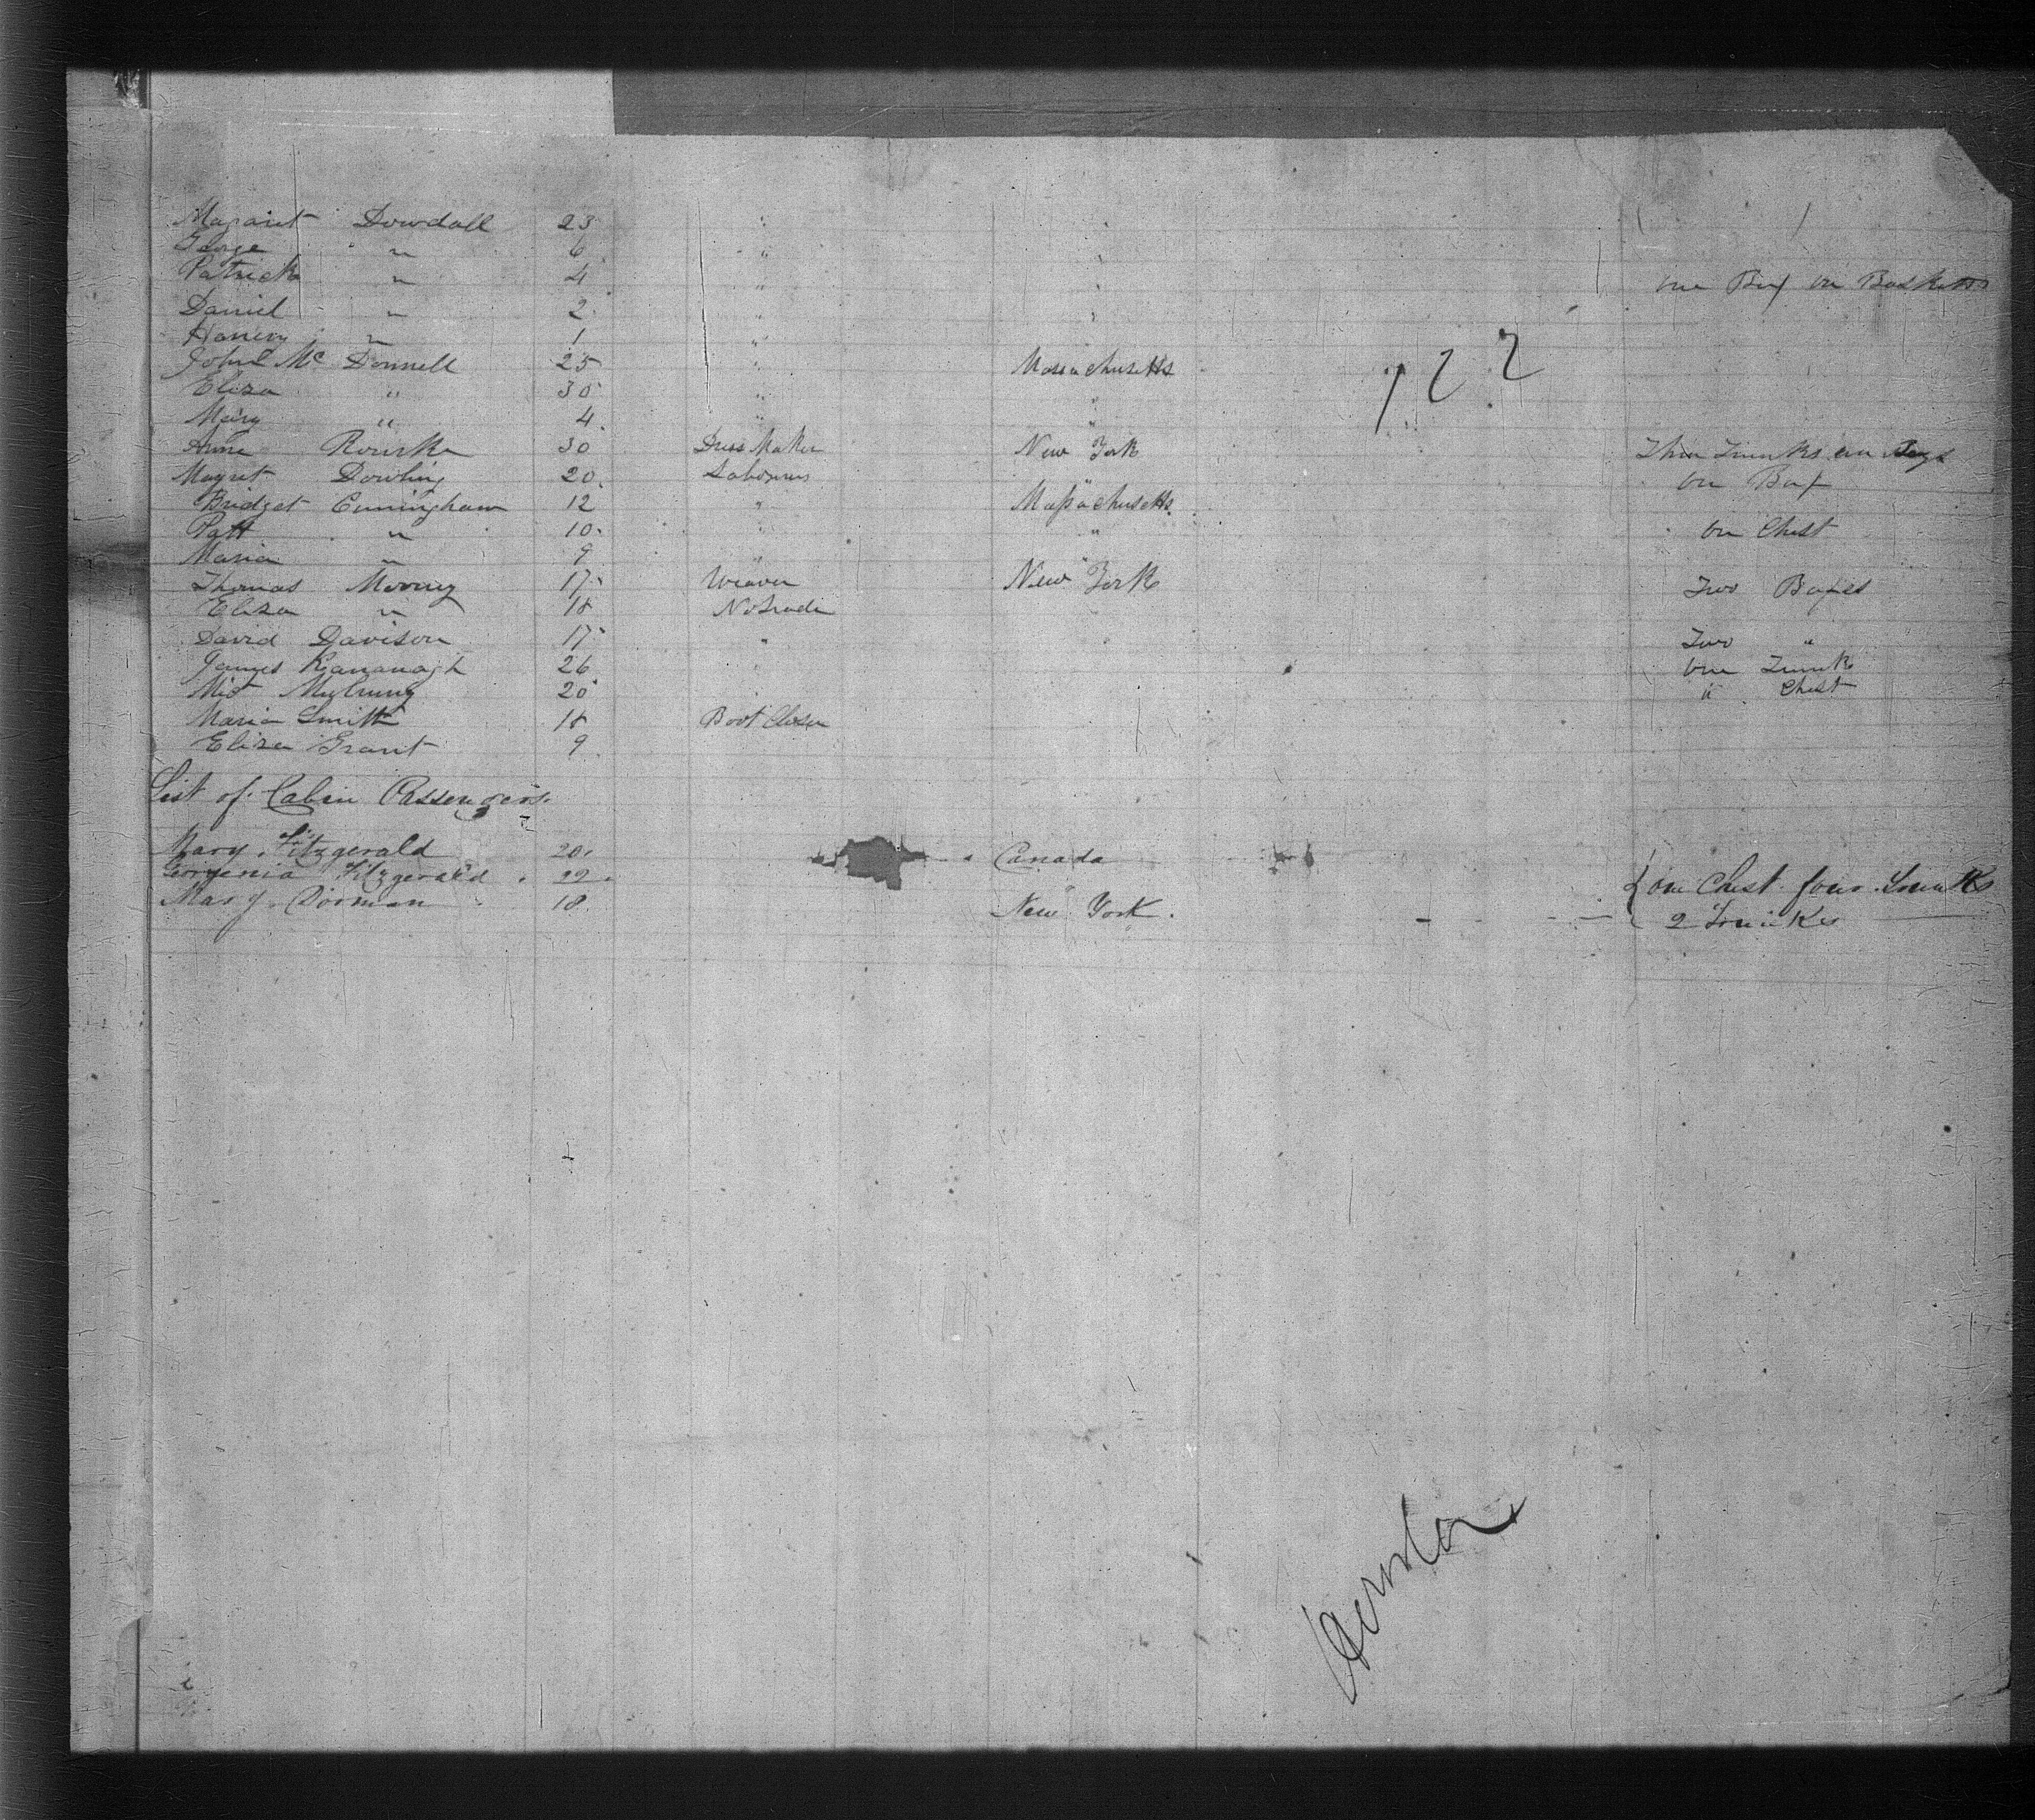 Magaret Dowdall 23 " "
George " 6 " "
Patrick " 4 " " one Box on Basketts
Daniel " 2 " "
Hanery " 1 "
John Mc Donnell 25 " Massachusetts 122
Eliza " 30 " "
Mary " 4 " "
Anne Rourke 30 Dress Maker New York Three Trunks one
Magret Dowling 20 Labourers " on Box
Bridget Cuningham 12 " Massachusetts
Patt " 10 " " on Chest
Maria " 9 " "
Thomas Mooney 17 Weaver New York Two Boxes
Eliza " 18 No Trade
David Davison 17 " Two "
James Kavanagh 26 " one Trunk
20 " Chest
Maria Smith 18 Boot Closer
Eliza Grant 9
List of Cabin Passengers
Mary Fitzgerald 20 Canada
Georgenia Fitzgerald 22 " one Chest four Trunks
Mary Dorman 18 New York 2 Trunks